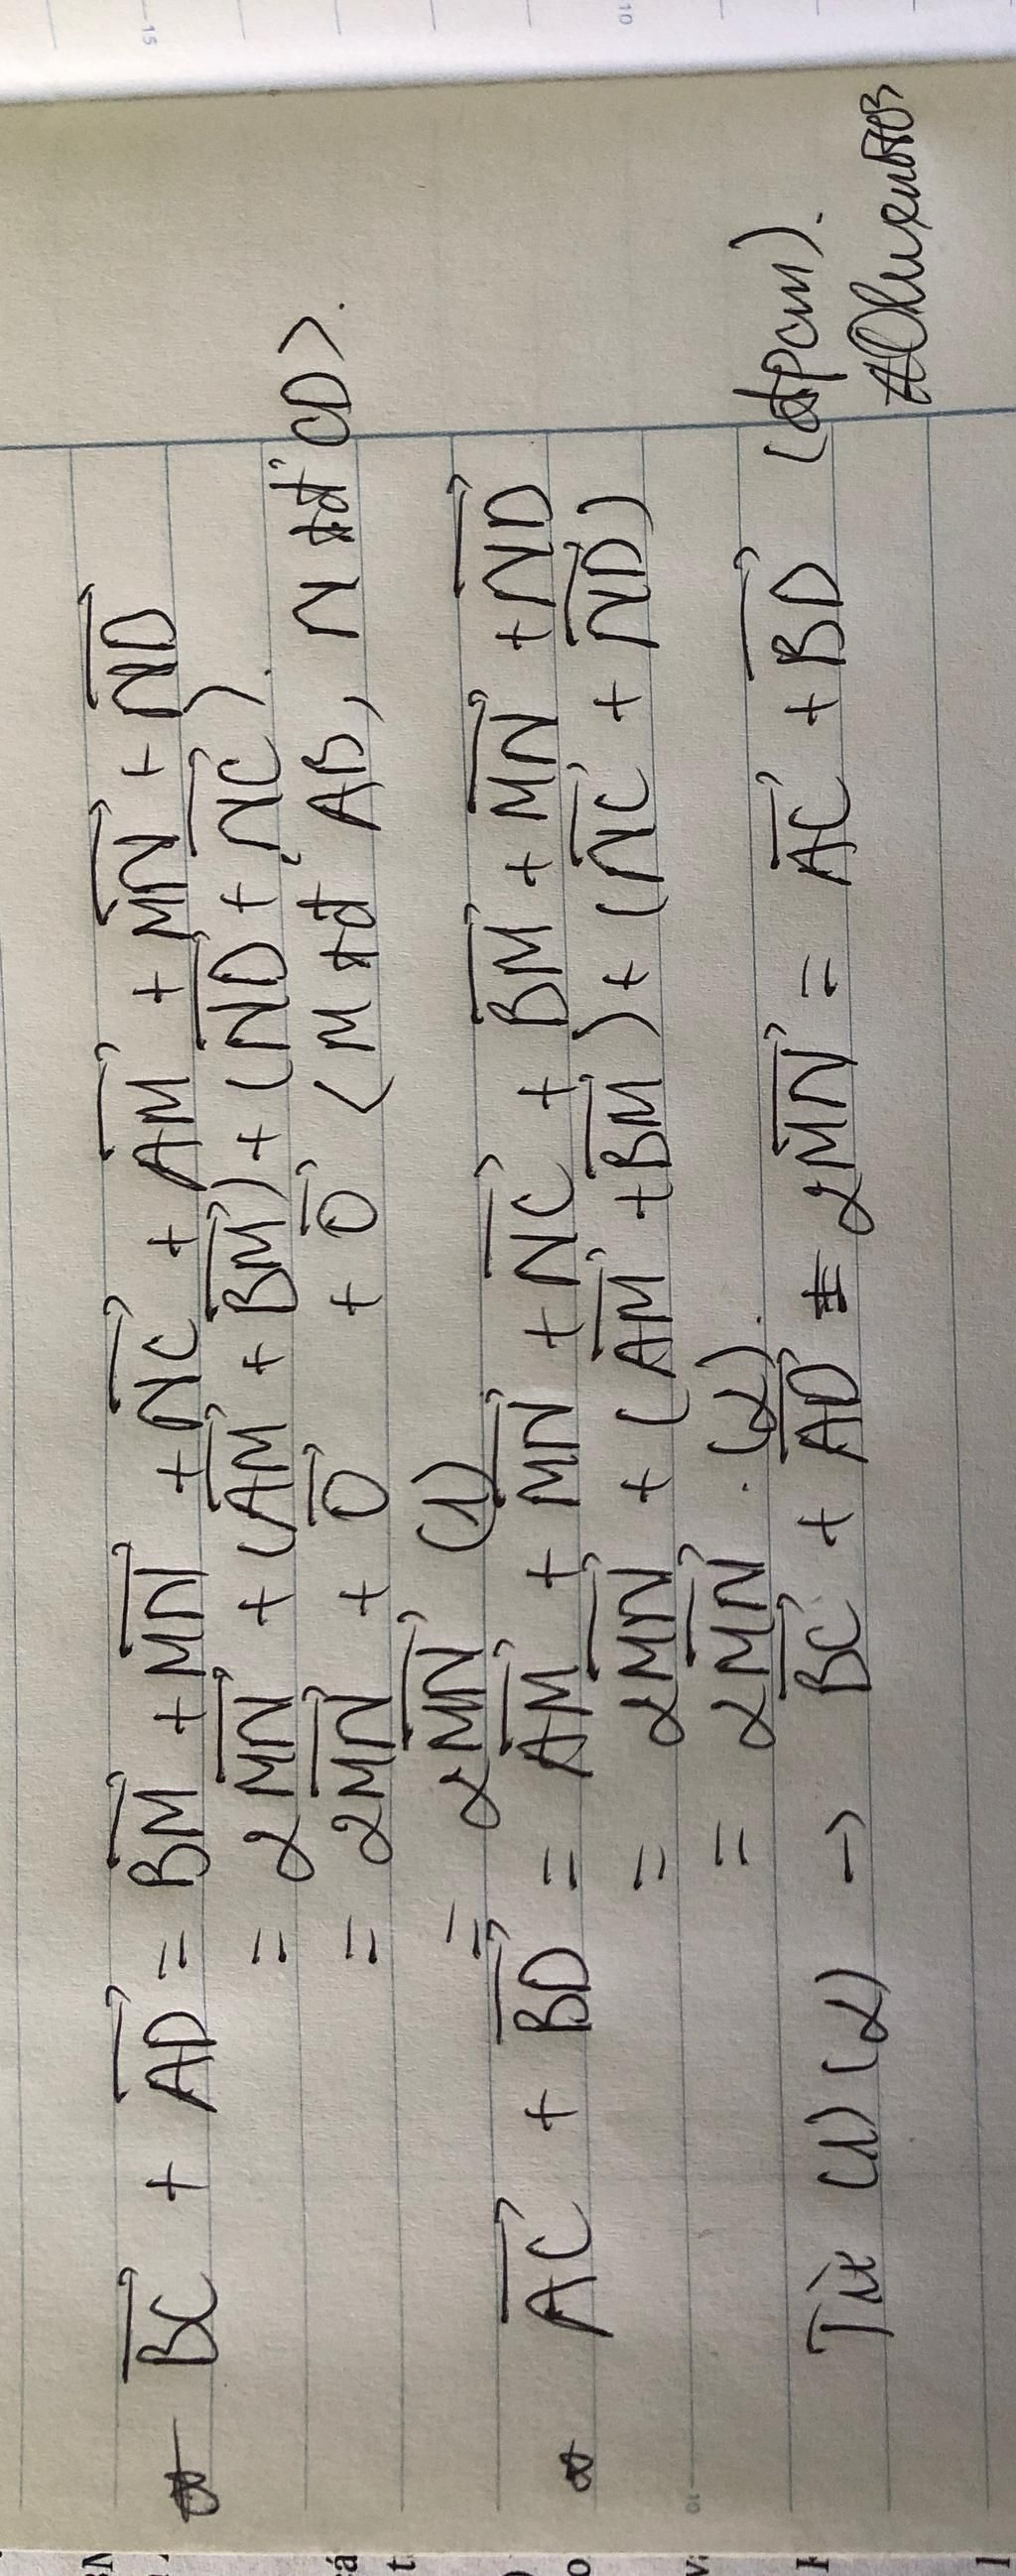 BC + AD = BM + MN + NC + AM + MN + ND
= 2MN + (AM + BM) + (ND + NC).
= 2MN + 0 + 0 (M tđ AB, N tđ CD).
= 2MN (1)
AC + BD = AM + MN + NC + BM + MN + ND
= 2MN + (AM + BM) + (NC + ND)
= 2MN. (2).
Từ (1) (2) → BC + AD = 2MN = AC + BD (đpcm).